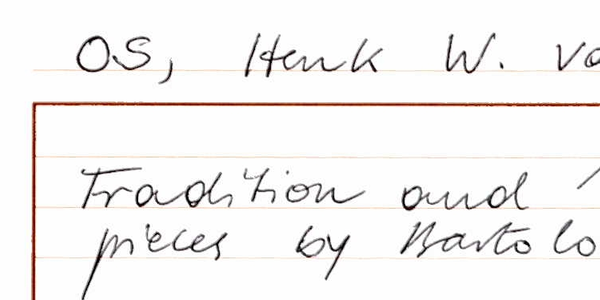 OS, Henk W. va
Tradition and
pieces by Bartolo